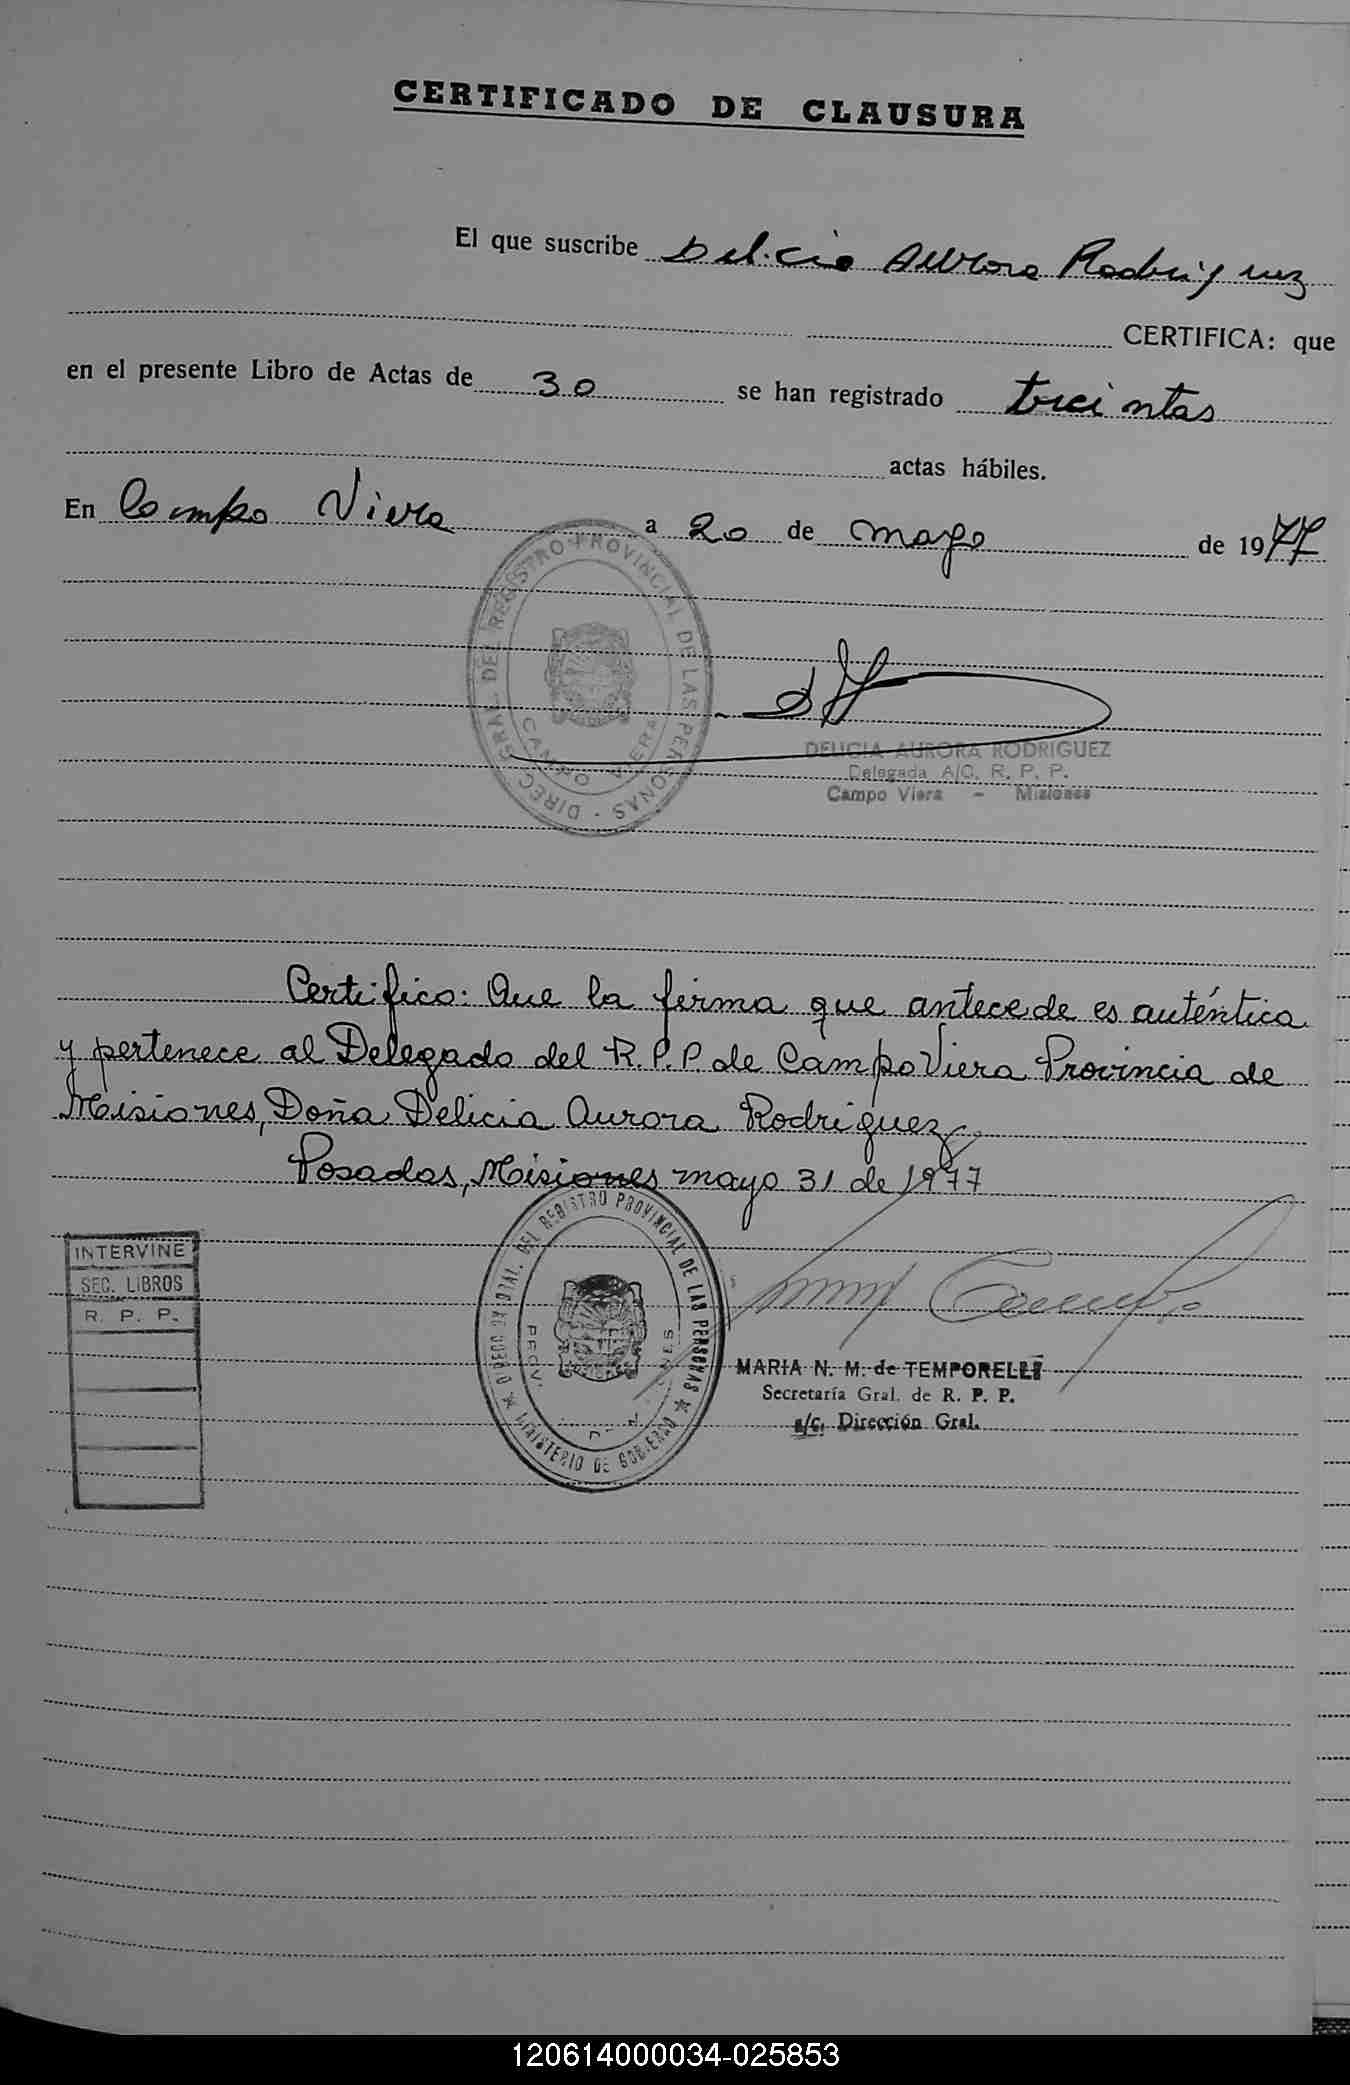 CERTIFICADO DE CLAUSURA
El que suscribe Delicia Aurora Rodriguez
CERTIFICA: que
en el presente Libro de Actas de 30 se han registrado treintas
actas hábiles.
En Campo Viera a 20 de mayo de 1977
DIREC. GRAL. DEL REGISTRO PROVINCIAL DE LAS PERSONAS
CAMPO VIERA
DELICIA AURORA RODRIGUEZ
Delegada A/C. R. P. P.
Campo Viera - Misiones
Certifico: Que la firma que antecede es auténtica
y pertenece al Delegado del R.P.P de Campo Viera Provincia de
Misiones, Doña Delicia Aurora Rodriguez
Posadas, Misiones mayo 31 de 1977
INTERVINE
SEC. LIBROS
R. P. P.
GRAL. DEL REGISTRO PROVINCIAL DE LAS PERSONAS
MINISTERIO DE GOBIERNO
MARIA N. M. de TEMPORELLI
Secretaría Gral. de R. P. P.
a/c. Dirección Gral.
120614000034-025853